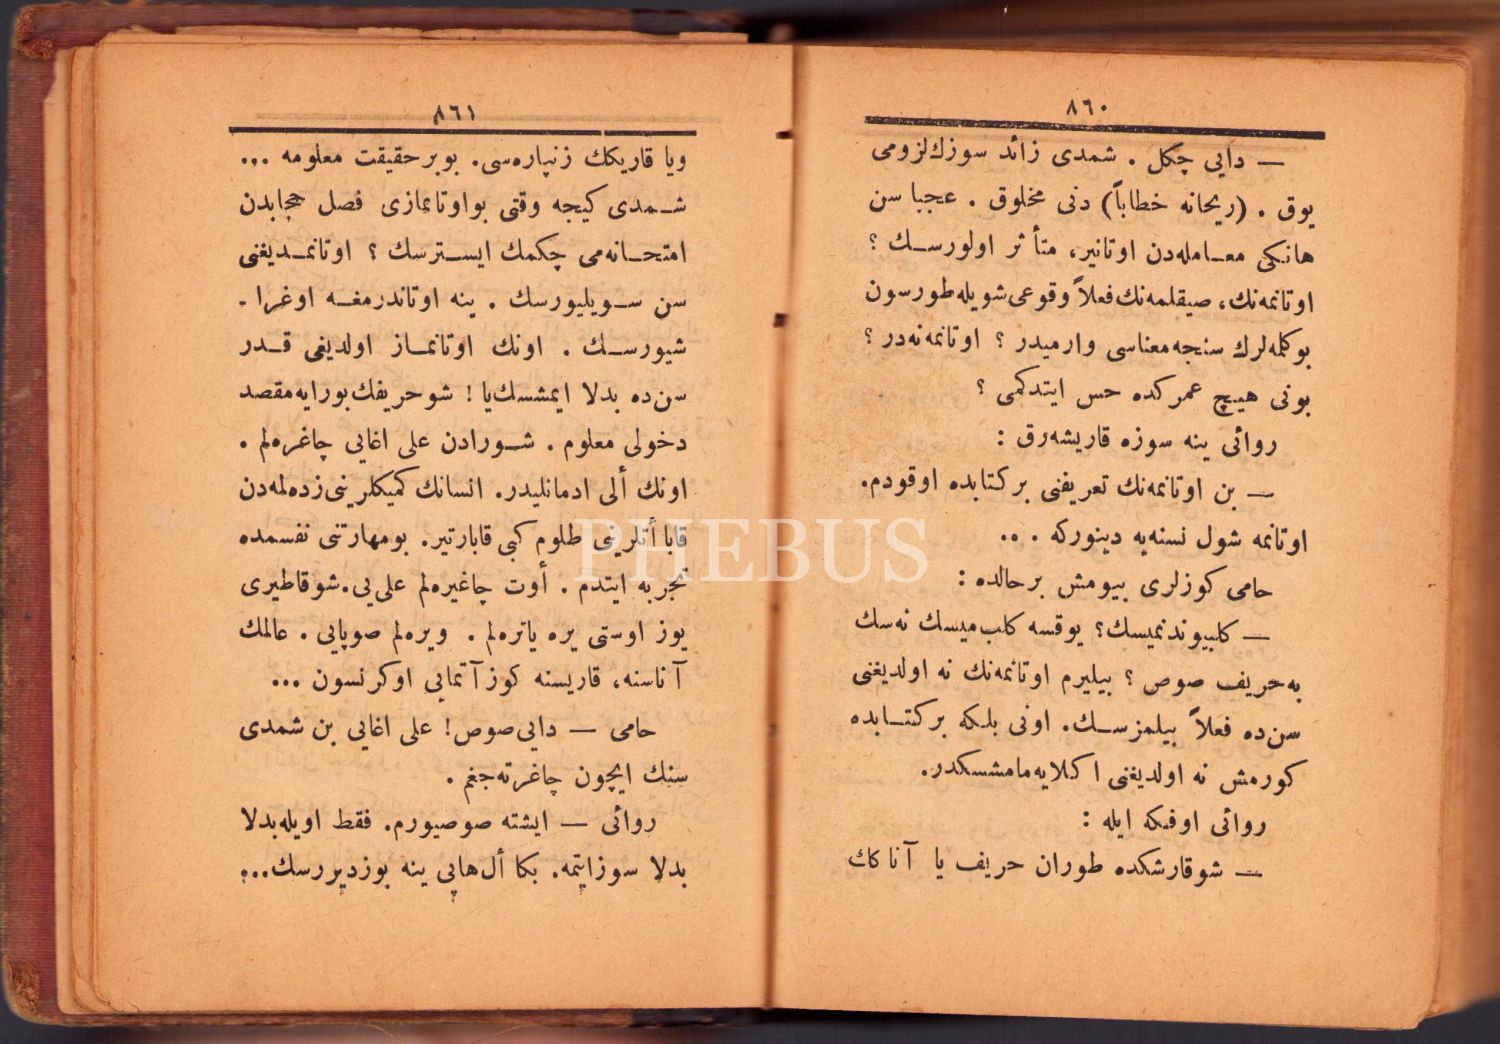 ٨٦٠
— دایی چکل . شمدی زائد سوزك لزومی
یوق . (ریحانه خطاباً) دنی مخلوق . عجبا سن
هانکی معامله‌دن اوتانیر، متأثر اولورسك ؟
اوتانمه‌نك، صیقلمه‌نك فعلاً وقوعی شویله طورسون
بوکله‌لرك سنجه معناسی وارمیدر ؟ اوتانمه نه‌در ؟
بونی هیچ عمرکده حس ایتدکمی ؟
روائی ینه سوزه قاریشه‌رق :
— بن اوتانمه‌نك تعریفنی برکتابده اوقودم.
اوتانمه شول نسنه‌یه دینورکه ...
حامی کوزلری بیومش برحالده :
— کلبیوندنمیسك؟ یوقسه کلب میسك نه‌سك
به حریف صوص ؟ بیلیرم اوتانمه‌نك نه اولدیغنی
سن‌ده فعلاً بیلمزسك. اونی بلکه برکتابده
کورمش نه اولدیغنی اکلایه‌مامشسکدر.
روائی اوفکه ایله :
— شوقارشکده طوران حریف یا آناکك
٨٦١
ویا قاریكك زنپاره‌سی. بوبر حقیقت معلومه ...
شمدی کیجه وقتی بواوتانمازی فصل حجابدن
امتحانه‌می چکمك ایسترسك ؟ اوتانمدیغنی
سن سویلیورسك . ینه اوتاندرمغه اوغرا -
شیورسك . اونك اوتانماز اولدیغی قدر
سن‌ده بدلا ایمشسك یا ! شو حریفك بورایه مقصد
دخولی معلوم . شورادن علی اغایی چاغره‌لم .
اونك ألی ادمانلیدر. انسانك کمیکلرینی زده‌لمه‌دن
قابا أتلرینی طلوم کبی قابارتیر. بومهارتنی نفسمده
تجربه ایتدم . أوت چاغیره‌لم علی‌یی. شوقاطیری
یوز اوستی یره یاتره‌لم . ویره‌لم صوپایی . عالمك
آناسنه، قاریسنه کوز آتمایی اوکرنسون ...
حامی — دایی صوص! علی اغایی بن شمدی
سنك ایچون چاغرته‌جغم .
روائی — ایشته صوصیورم. فقط اویله بدلا
بدلا سوزایتمه. بکا أل‌هایی ینه بوزدیررسك...
PHEBUS